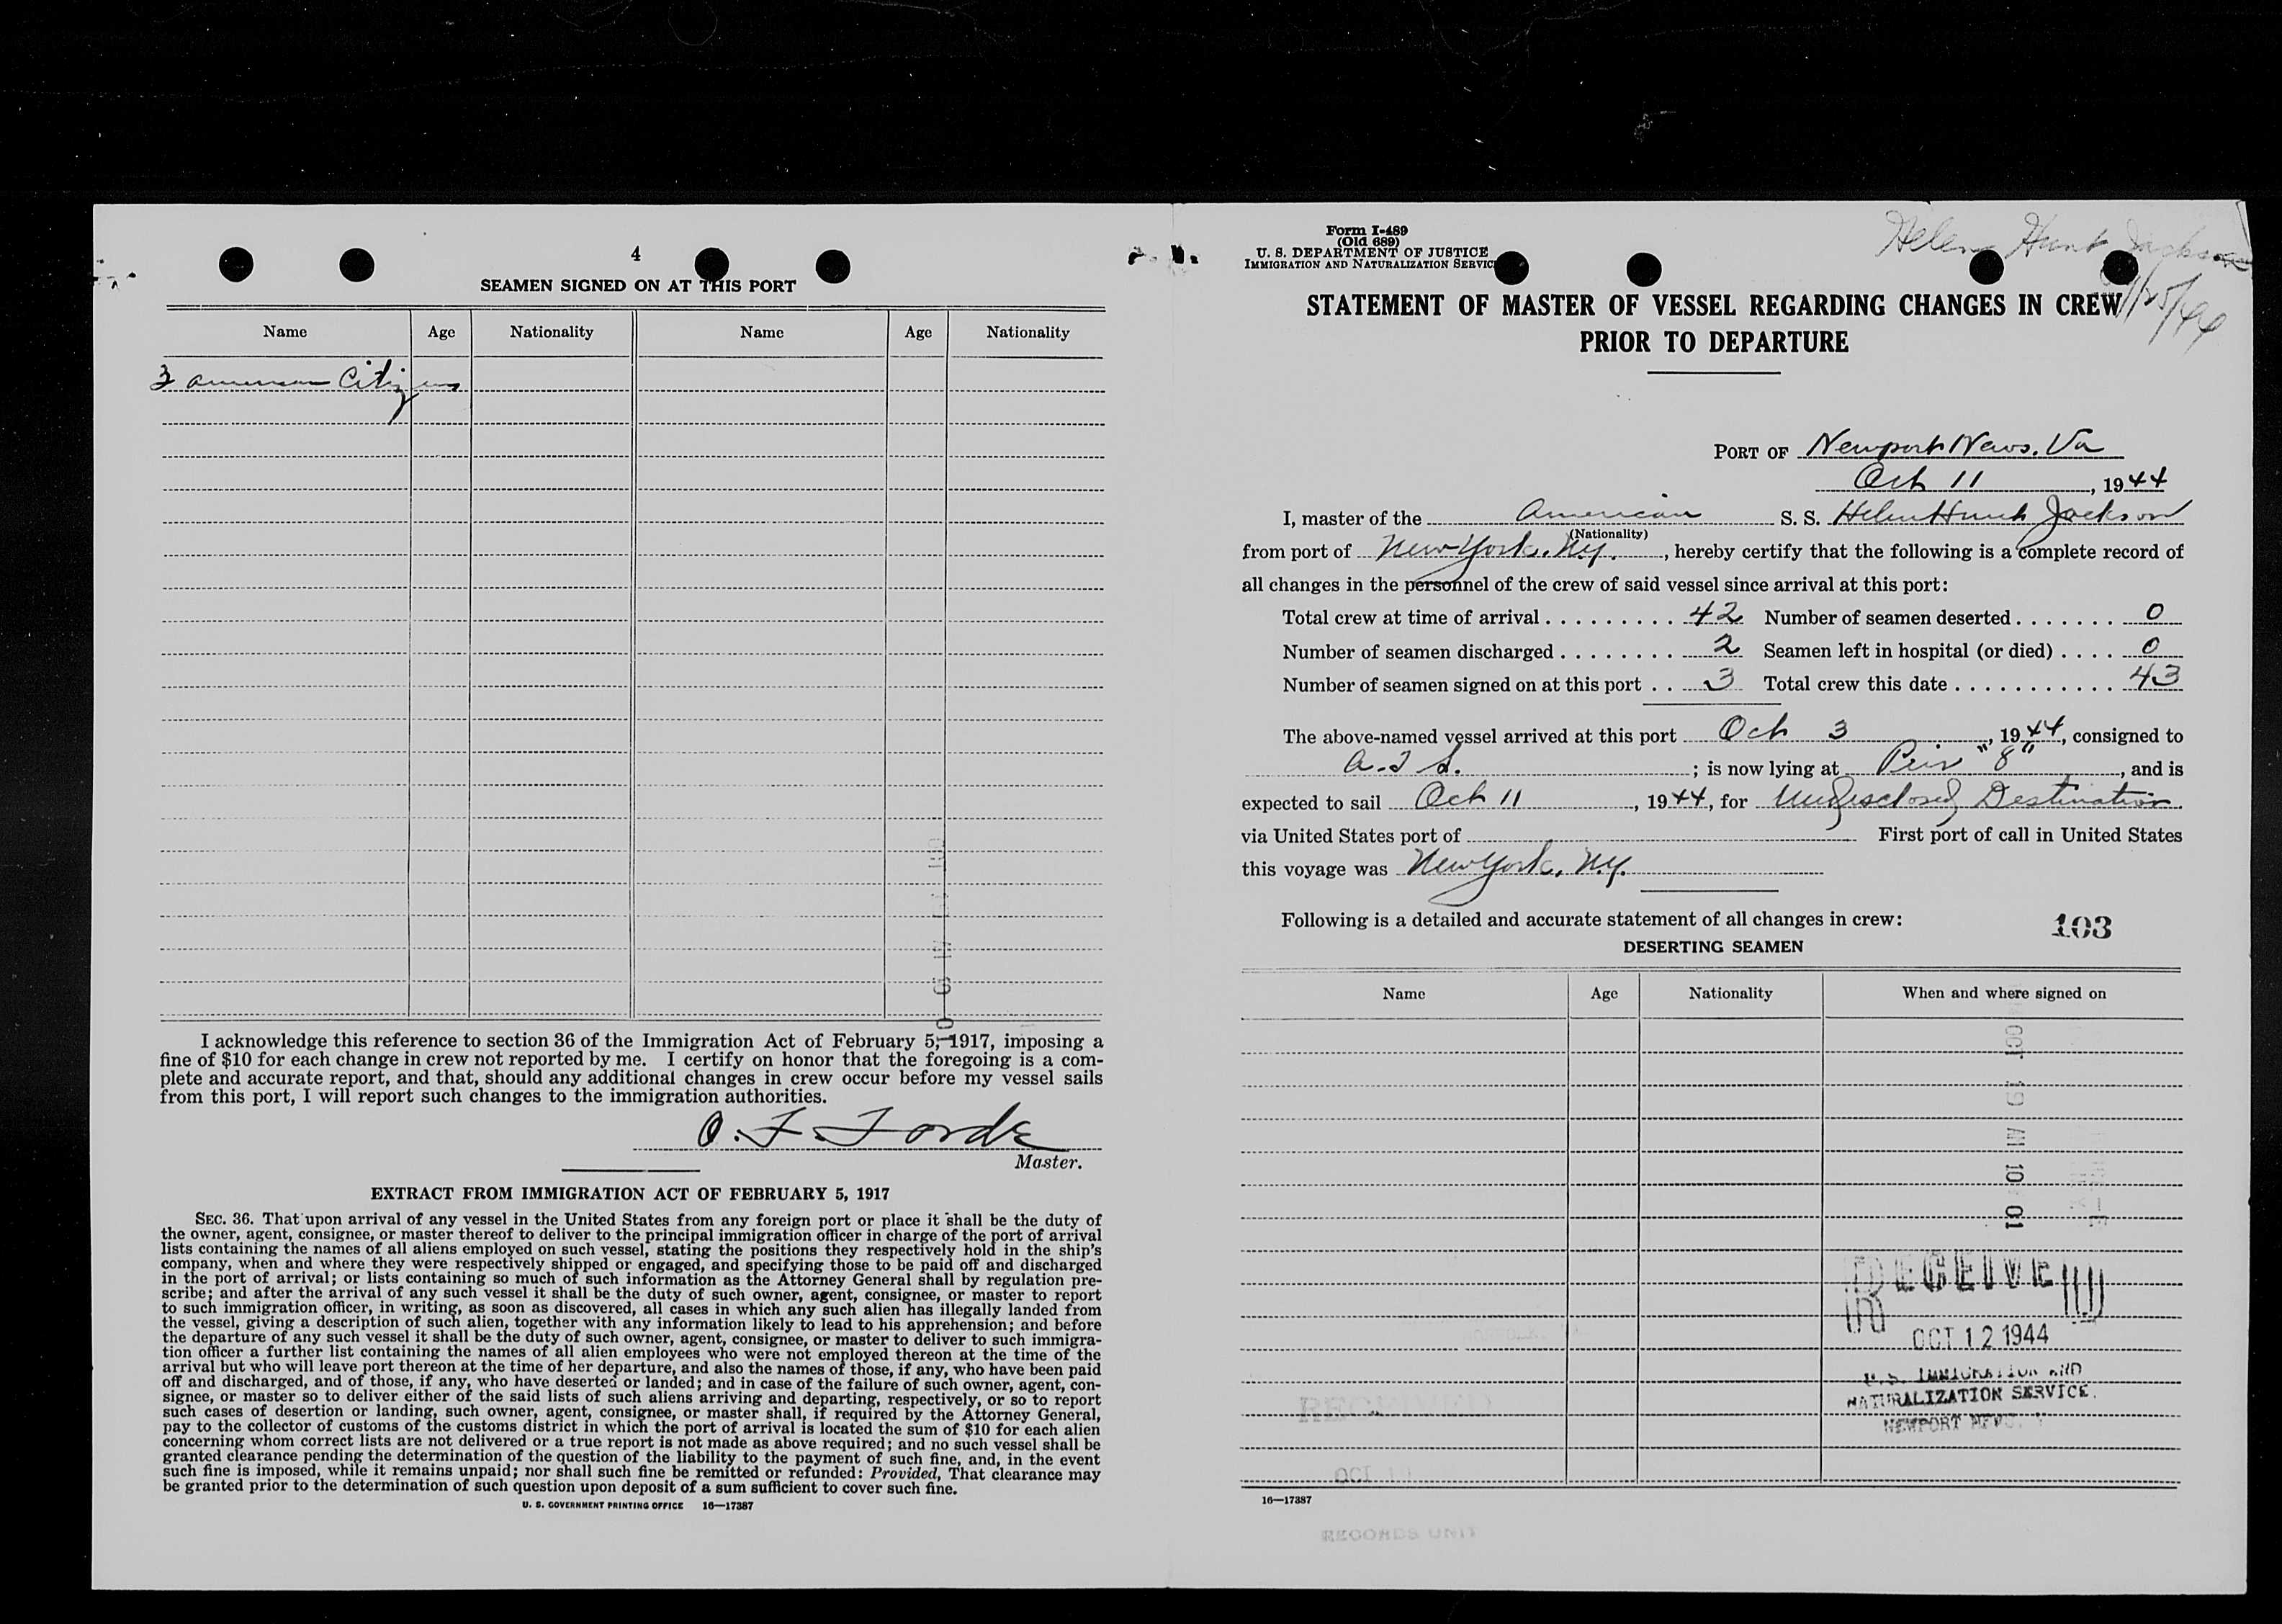 4
SEAMEN SIGNED ON AT THIS PORT
Name Age Nationality Name Age Nationality
3 american Citizens
I acknowledge this reference to section 36 of the Immigration Act of February 5, 1917, imposing a
fine of $10 for each change in crew not reported by me. I certify on honor that the foregoing is a com-
plete and accurate report, and that, should any additional changes in crew occur before my vessel sails
from this port, I will report such changes to the immigration authorities.
O. F. Forde
Master.
EXTRACT FROM IMMIGRATION ACT OF FEBRUARY 5, 1917
SEC. 36. That upon arrival of any vessel in the United States from any foreign port or place it shall be the duty of
the owner, agent, consignee, or master thereof to deliver to the principal immigration officer in charge of the port of arrival
lists containing the names of all aliens employed on such vessel, stating the positions they respectively hold in the ship's
company, when and where they were respectively shipped or engaged, and specifying those to be paid off and discharged
in the port of arrival; or lists containing so much of such information as the Attorney General shall by regulation pre-
scribe; and after the arrival of any such vessel it shall be the duty of such owner, agent, consignee, or master to report
to such immigration officer, in writing, as soon as discovered, all cases in which any such alien has illegally landed from
the vessel, giving a description of such alien, together with any information likely to lead to his apprehension; and before
the departure of any such vessel it shall be the duty of such owner, agent, consignee, or master to deliver to such immigra-
tion officer a further list containing the names of all alien employees who were not employed thereon at the time of the
arrival but who will leave port thereon at the time of her departure, and also the names of those, if any, who have been paid
off and discharged, and of those, if any, who have deserted or landed; and in case of the failure of such owner, agent, con-
signee, or master so to deliver either of the said lists of such aliens arriving and departing, respectively, or so to report
such cases of desertion or landing, such owner, agent, consignee, or master shall, if required by the Attorney General,
pay to the collector of customs of the customs district in which the port of arrival is located the sum of $10 for each alien
concerning whom correct lists are not delivered or a true report is not made as above required; and no such vessel shall be
granted clearance pending the determination of the question of the liability to the payment of such fine, and, in the event
such fine is imposed, while it remains unpaid; nor shall such fine be remitted or refunded: Provided, That clearance may
be granted prior to the determination of such question upon deposit of a sum sufficient to cover such fine.
U. S. GOVERNMENT PRINTING OFFICE 16—17387
Form I-489
(Old 689)
U. S. DEPARTMENT OF JUSTICE
IMMIGRATION AND NATURALIZATION SERVICE
Helen Hunt Jackson
STATEMENT OF MASTER OF VESSEL REGARDING CHANGES IN CREW
PRIOR TO DEPARTURE
PORT OF Newport News. Va
Oct 11, 1944
I, master of the American S. S. Helen Hunt Jackson
(Nationality)
from port of New York. N.Y., hereby certify that the following is a complete record of
all changes in the personnel of the crew of said vessel since arrival at this port:
Total crew at time of arrival 42 Number of seamen deserted 0
Number of seamen discharged 2 Seamen left in hospital (or died) 0
Number of seamen signed on at this port 3 Total crew this date 43
The above-named vessel arrived at this port Oct 3, 1944, consigned to
; is now lying at Peir "8", and is
expected to sail Oct 11, 1944, for Undisclosed Destination.
via United States port of First port of call in United States
this voyage was New York, N.Y.
Following is a detailed and accurate statement of all changes in crew:
103
DESERTING SEAMEN
Name Age Nationality When and where signed on
OCT 19 AM 10 01
RECEIVED
OCT 12 1944
U.S. IMMIGRATION AND
NATURALIZATION SERVICE
NEWPORT NEWS
RECEIVED
OCT
16—17387
RECORDS UNIT